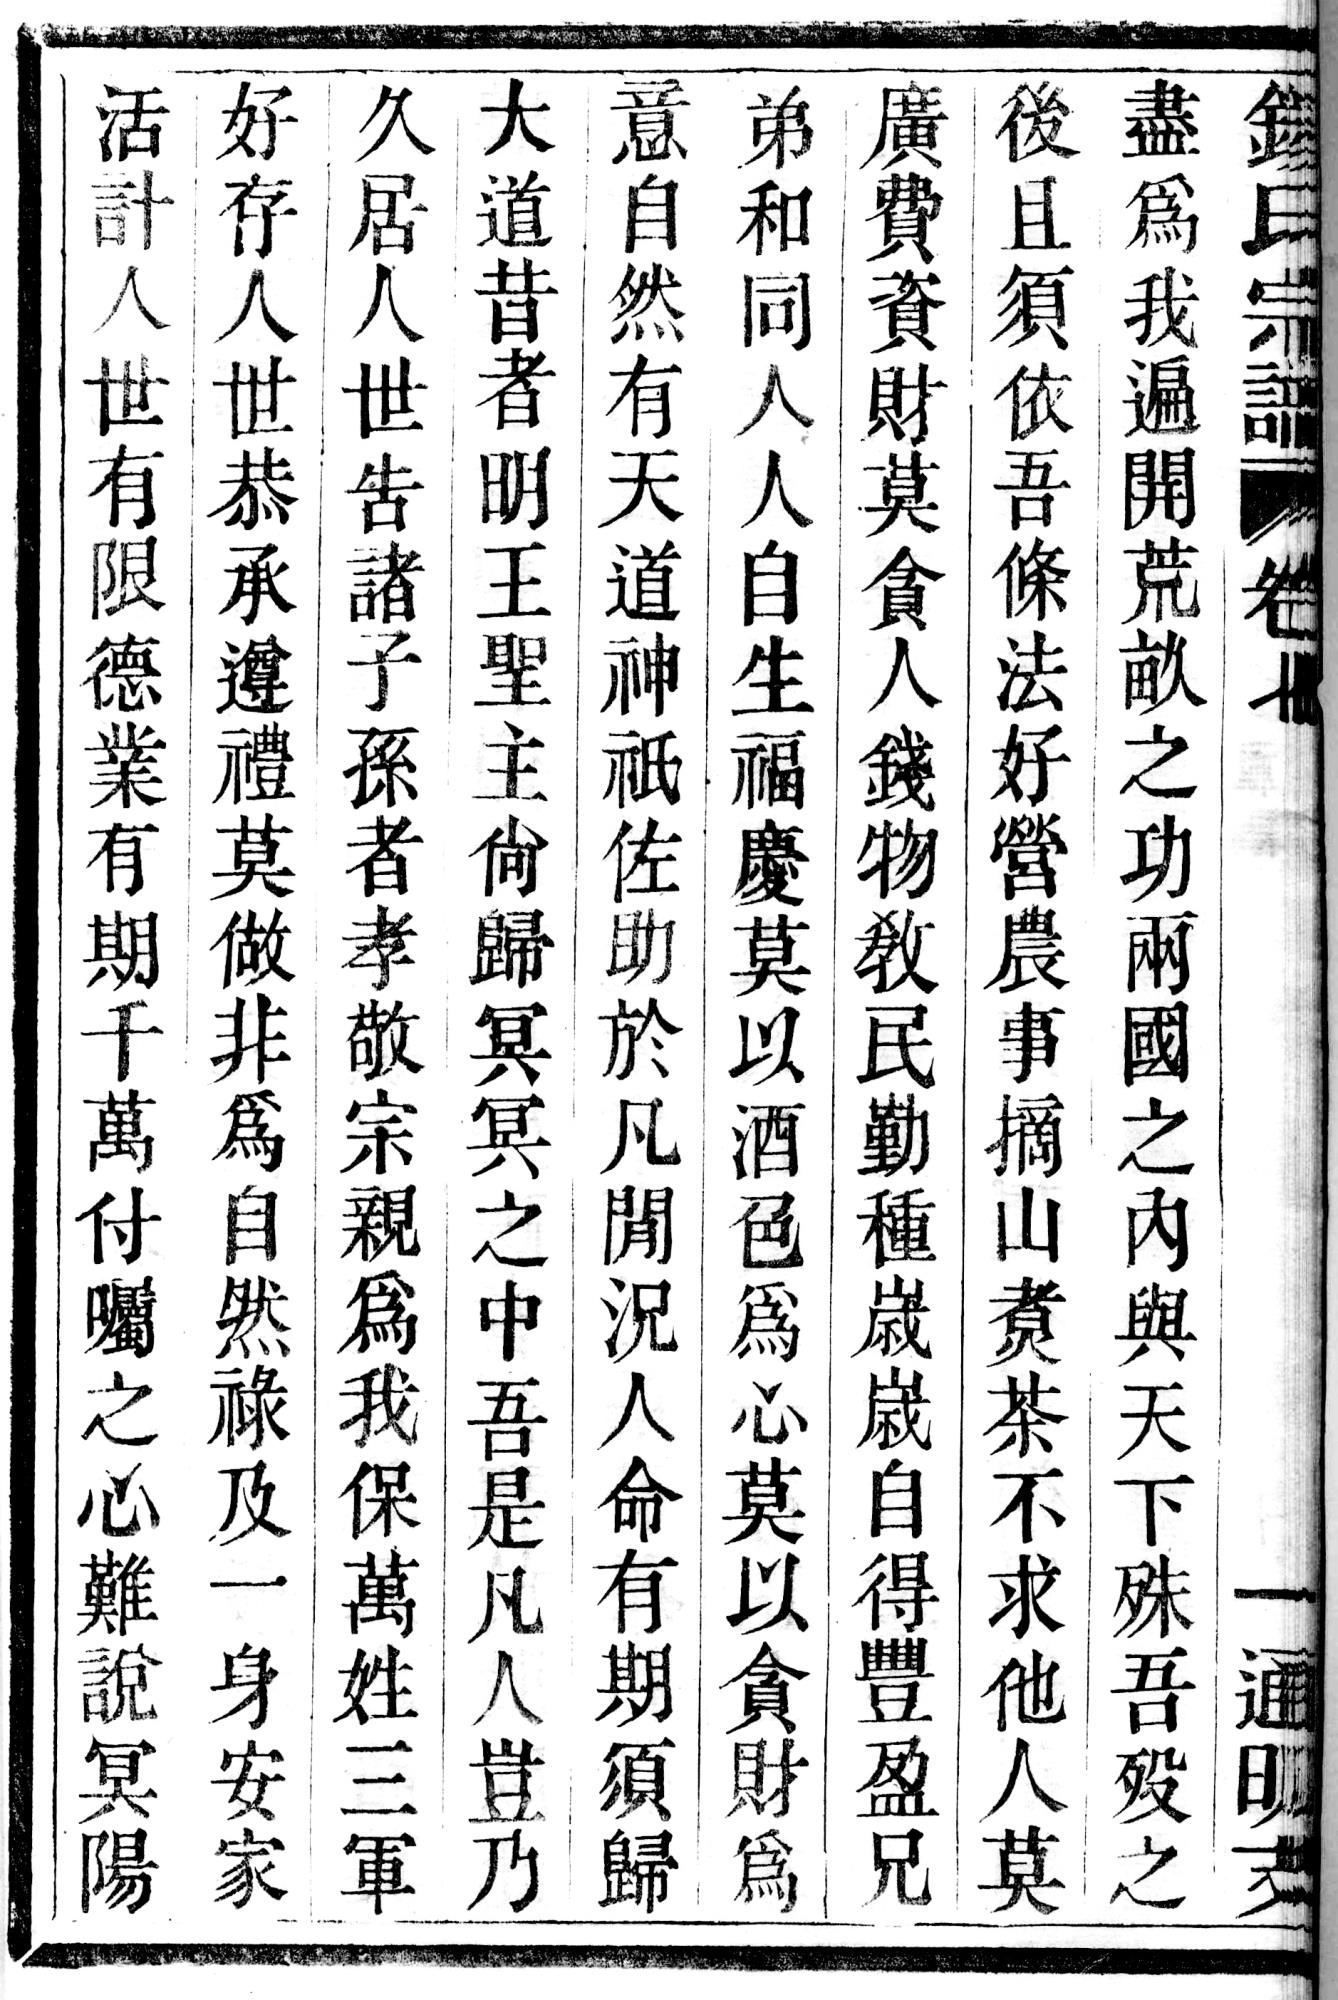 氏宗譜 卷 一 通
盡爲我遍開荒畝之功兩國之內與天下殊吾歿之
後且須依吾條法好營農事摘山煑茶不求他人莫
廣費資財莫貪人錢物敎民勤種歳歳自得豐盈兄
弟和同人人自生福慶莫以酒色爲心莫以貪財爲
意自然有天道神祇佐助於凡閒況人命有期須歸
大道昔者明王聖主尙歸冥冥之中吾是凡人豈乃
久居人世告諸子孫者孝敬宗親爲我保萬姓三軍
好存人世恭承遵禮莫做非爲自然祿及一身安家
活計人世有限德業有期千萬付囑之心難說冥陽